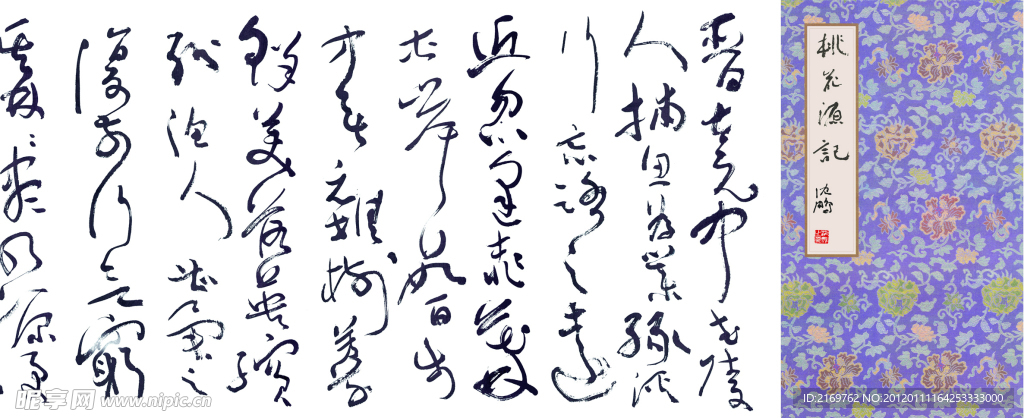 桃花源記
沈鵬
晉太元中武陵
人捕魚為業緣溪
行忘路之遠
近忽逢桃花林
夾岸數百步
中無雜樹芳草
鮮美落英繽
紛漁人甚異之
復前行欲窮
其林林盡水源便
昵享网 www.nipic.cn
ID:2169762 NO:20120111164253333000